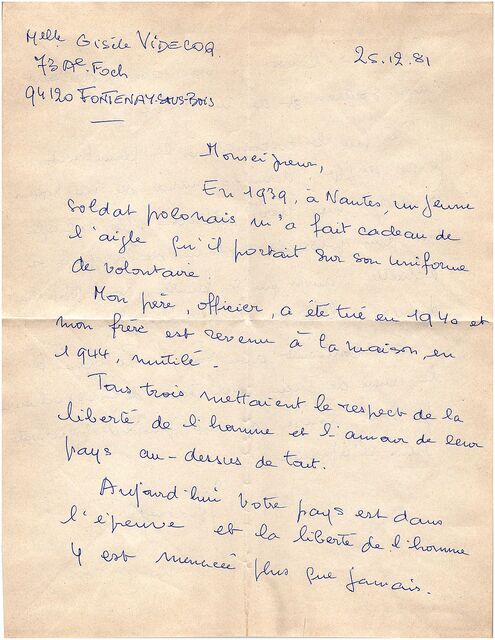 Melle Gisèle VIDECOQ
25.12.81
73 Ae. Foch
94120 FONTENAY-SOUS-BOIS
Monseigneur,
En 1939, à Nantes, un jeune
soldat polonais m'a fait cadeau de
l'aigle qu'il portait sur son uniforme
de volontaire.
Mon père, officier, a été tué en 1940 et
mon frère est revenu à la maison, en
1944, mutilé.
Tous trois mettaient le respect de la
liberté de l'homme et l'amour de leur
pays au-dessus de tout.
Aujourd'hui votre pays est dans
l'épreuve et la liberté de l'homme
y est menacée plus que jamais.